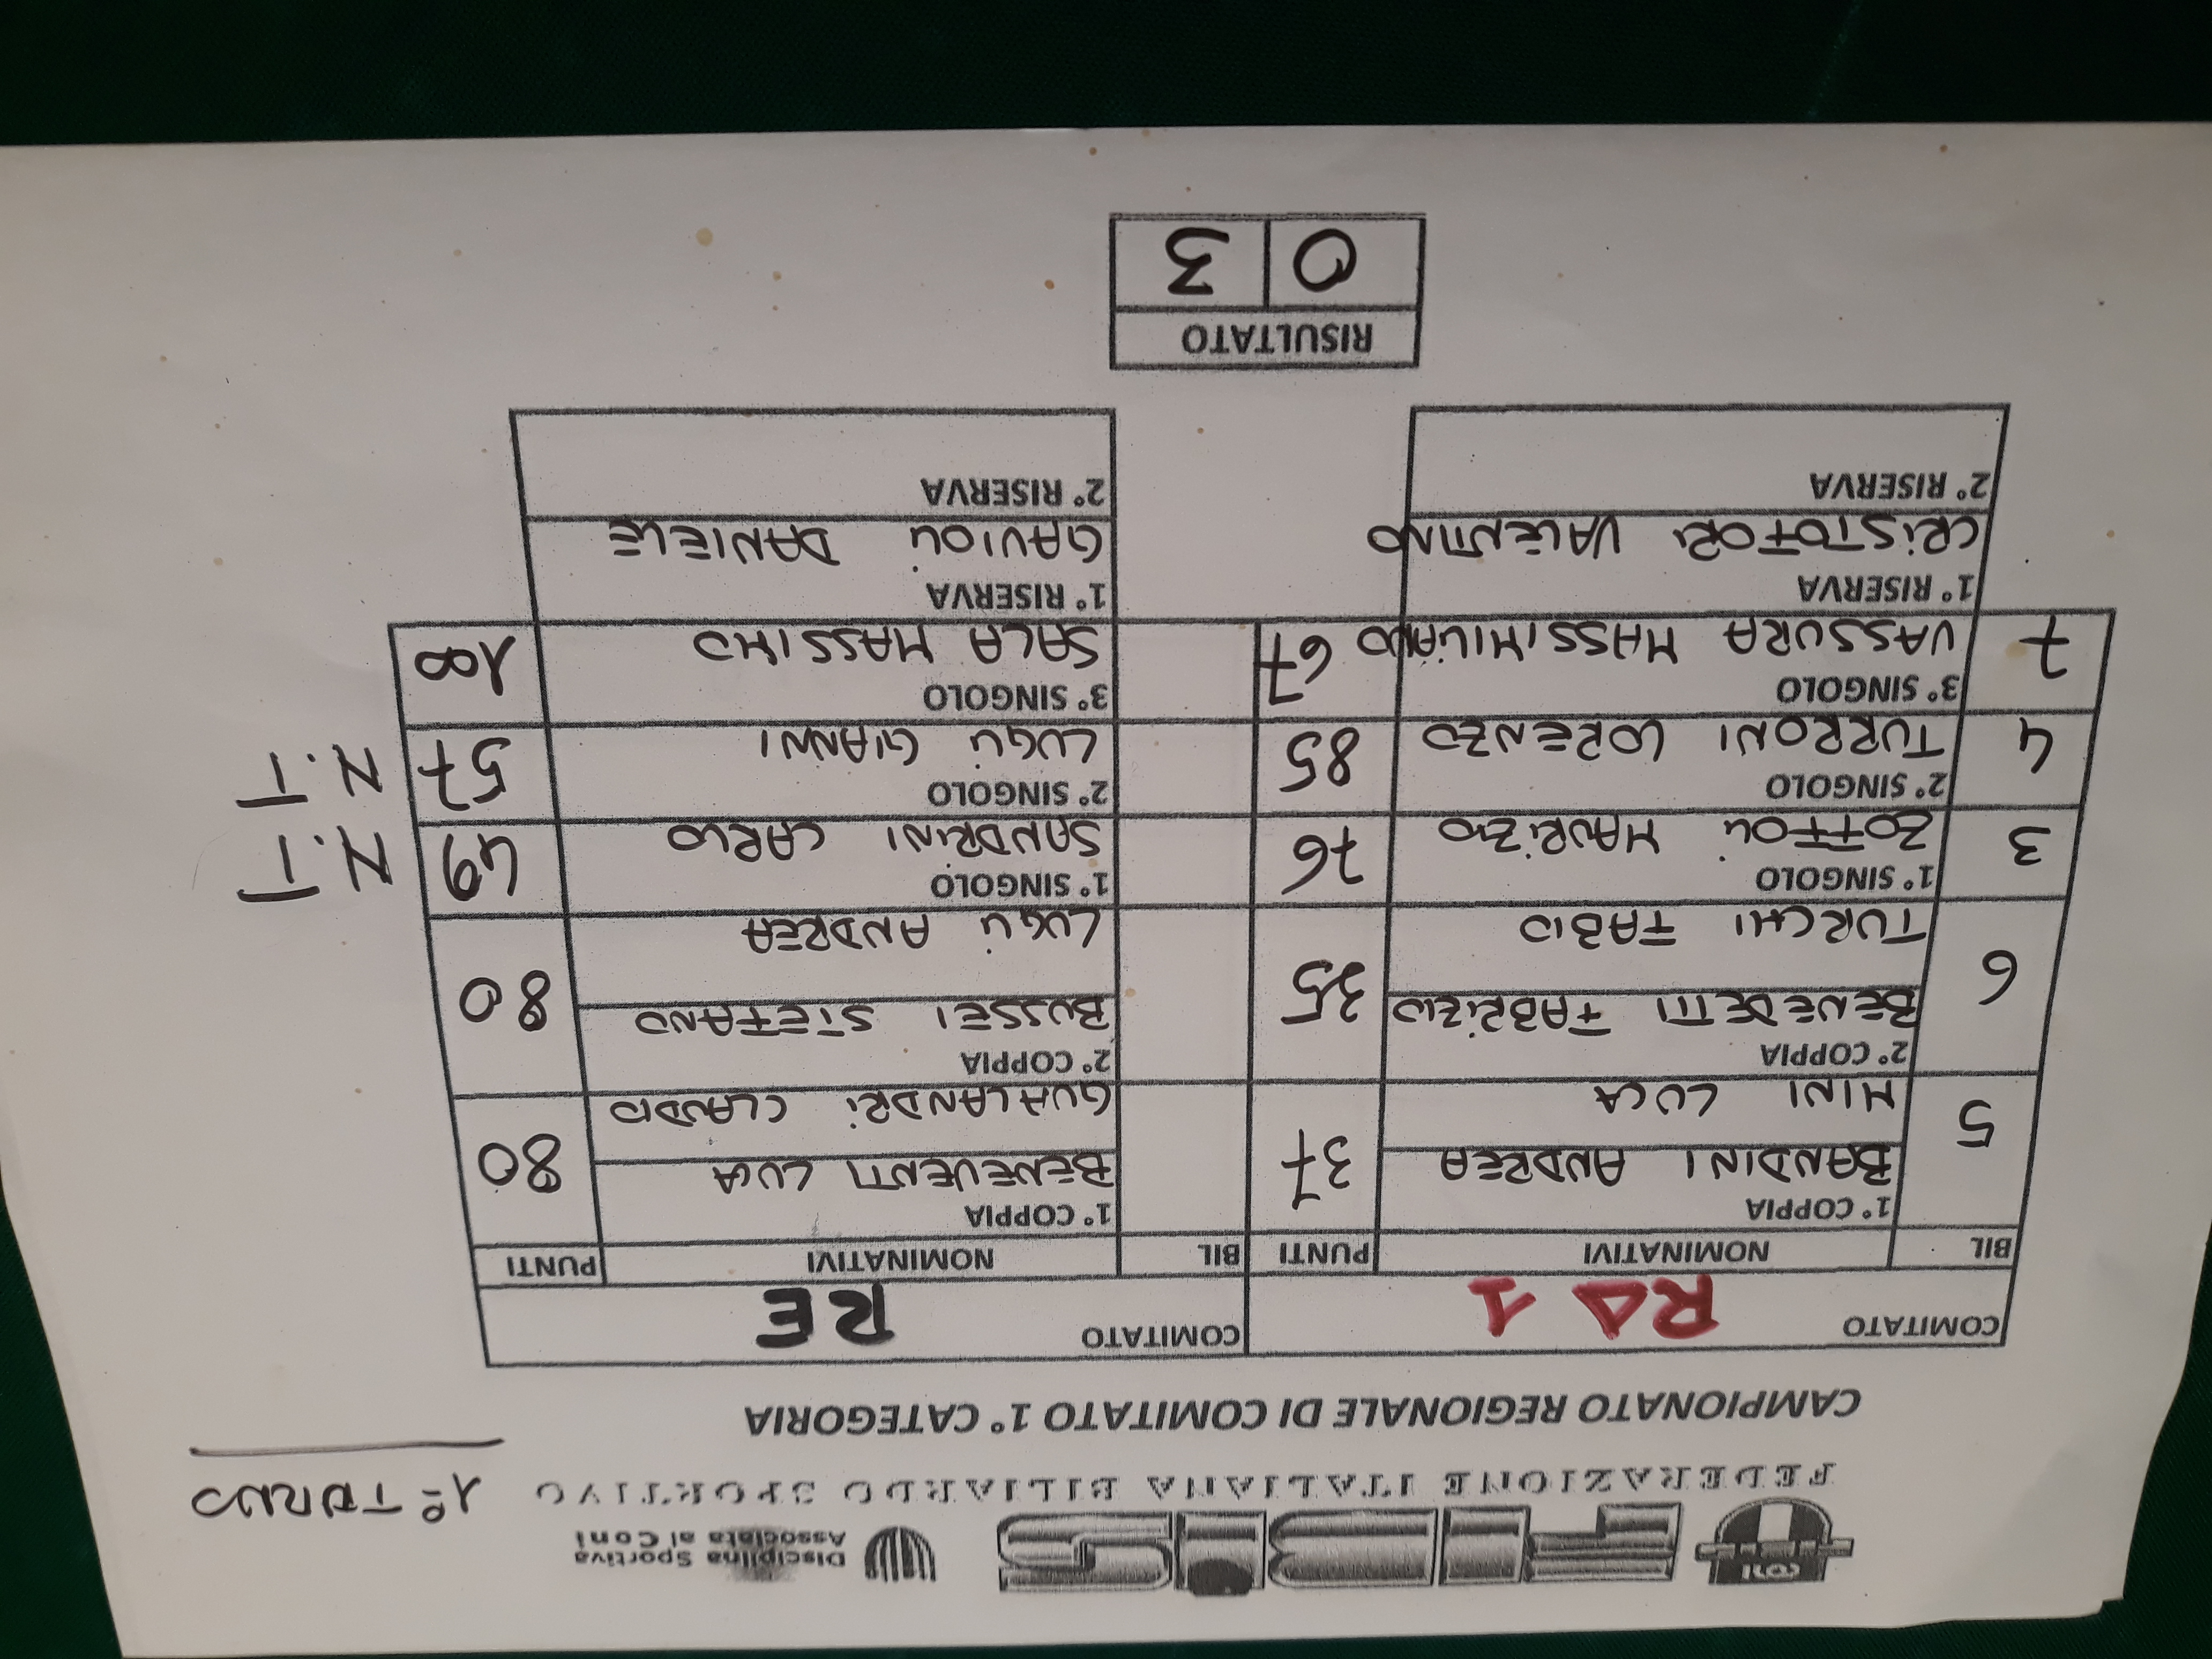 CONI FIBIS Disciplina Sportiva
Associata al Coni
FEDERAZIONE ITALIANA BILIARDO SPORTIVO 1º TURNO
CAMPIONATO REGIONALE DI COMITATO 1° CATEGORIA
COMITATO RA 1 COMITATO RE
BIL NOMINATIVI PUNTI BIL NOMINATIVI PUNTI
1° COPPIA 1° COPPIA
5 BANDINI ANDREA 37 BENEVENTI LUCA 80
MINI LUCA GUALANDRI CLAUDIO
2° COPPIA 2° COPPIA
6 BENEDETTI FABRIZIO 35 BUSSEI STEFANO 80
TURCHI FABIO LUGLI ANDREA
1° SINGOLO 1° SINGOLO
3 ZOFFOLI MAURIZIO 76 SANDRINI CARLO 49 N.T
2° SINGOLO 2° SINGOLO
4 TURRONI LORENZO 85 LUGLI GIANNI 57 N.T
3° SINGOLO 3° SINGOLO
7 VASSURA MASSIMILIANO 67 SALA MASSIMO 100
1° RISERVA 1° RISERVA
CRISTOFORI VALENTINO GAVIOLI DANIELE
2° RISERVA 2° RISERVA
RISULTATO
0 3